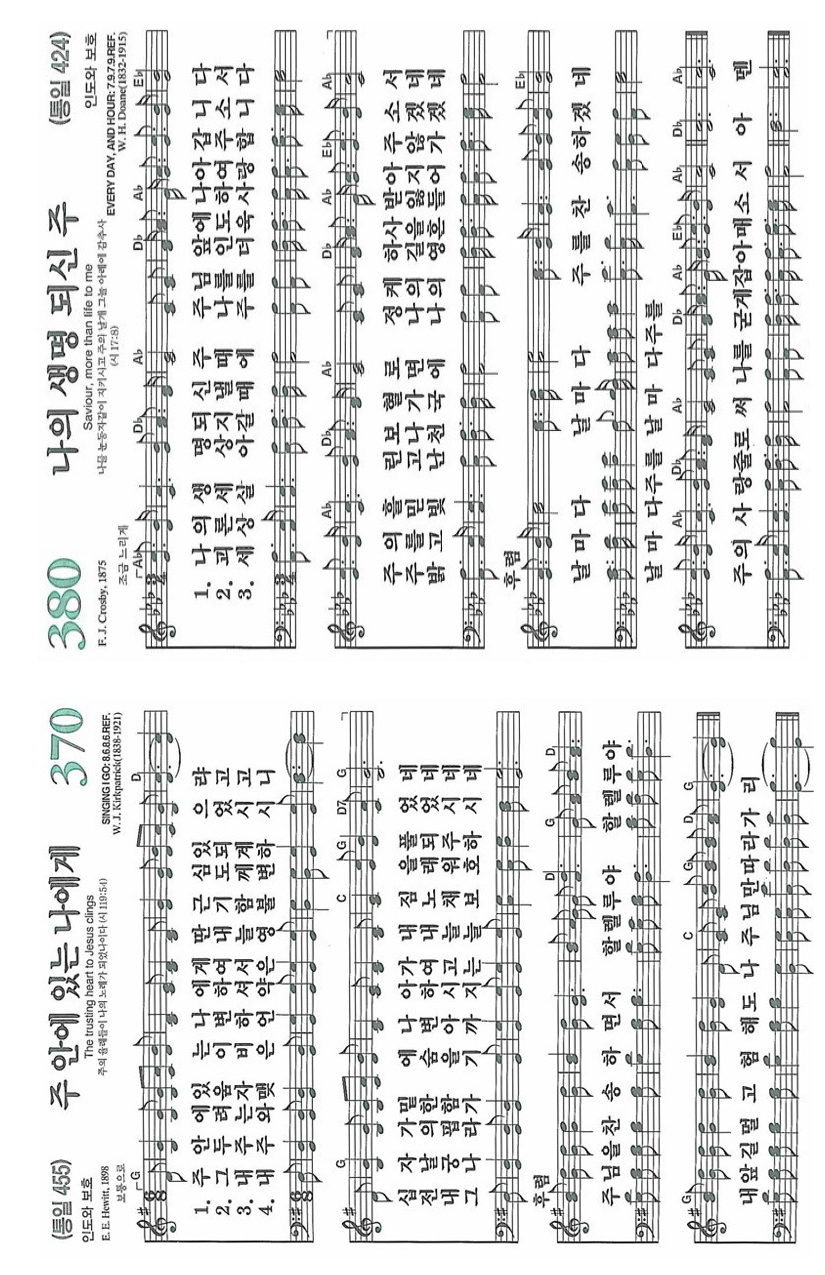 (통일 455) 주 안에 있는 나에게 370
인도와 보호
The trusting heart to Jesus clings
주의 율례들이 나의 노래가 되었나이다 (시 119:54)
E. E. Hewitt, 1898
SINGING I GO: 8.6.8.6.REF.
W. J. Kirkpatrick(1838-1921)
보통으로
G D
1. 주 안 에있 는 나 에게 딴 근 심있 으 랴
2. 그 두 려움 이 변 하여 내 기 도되 었 고
3. 내 주 는자 비 하 셔서 늘 함 께계 시 고
4. 내 주 와맺 은 언 약은 영 불 변하 시 니
G C G D7 G
십 자 가밑 에 나 아가 내 짐 을풀 었 네
전 날 의한 숨 변 하여 내 노 래되 었 네
내 궁 핍함 을 아 시고 늘 채 워주 시 네
그 나 라가 기 까 지는 늘 보 호하 시 네
후렴
D G D
주님을찬 송 하 면서 할렐루야 할렐루야
G C G D G
내앞길멀 고 험 해도 나 주님만따라가 리
380 나의 생명 되신 주 (통일 424)
인도와 보호
Saviour, more than life to me
나를 눈동자같이 지키시고 주의 날개 그늘 아래에 감추사
(시 17:8)
F. J. Crosby, 1875
EVERY DAY, AND HOUR: 7.9.7.9.REF.
W. H. Doane(1832-1915)
조금 느리게
A♭ D♭ A♭ D♭ A♭ E♭
1. 나 의 생 명 되 신 주 주님 앞에 나아 갑 니 다
2. 괴 론 세 상 지 낼 때 나를 인도 하여 주 소 서
3. 세 상 살 아 갈 때 에 주를 더욱 사랑 합 니 다
A♭ D♭ A♭ D♭ A♭ E♭ A♭
주 의 흘 린 보 혈 로 정 케 하사 받아 주 소 서
주 를 믿 고 나 가 면 나의 길을 잃지 않 겠 네
밝 고 빛 난 천 국 에 나의 영혼 들어 가 겠 네
후렴
E♭
날 마 다 날 마 다 주 를 찬 송하겠 네
날 마 다주를 날 마 다주를
A♭ D♭ A♭ D♭ A♭ E♭ A♭ D♭ A♭
주의 사 랑줄로 써 나를 굳게잡아매소 서 아 멘